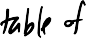 table of